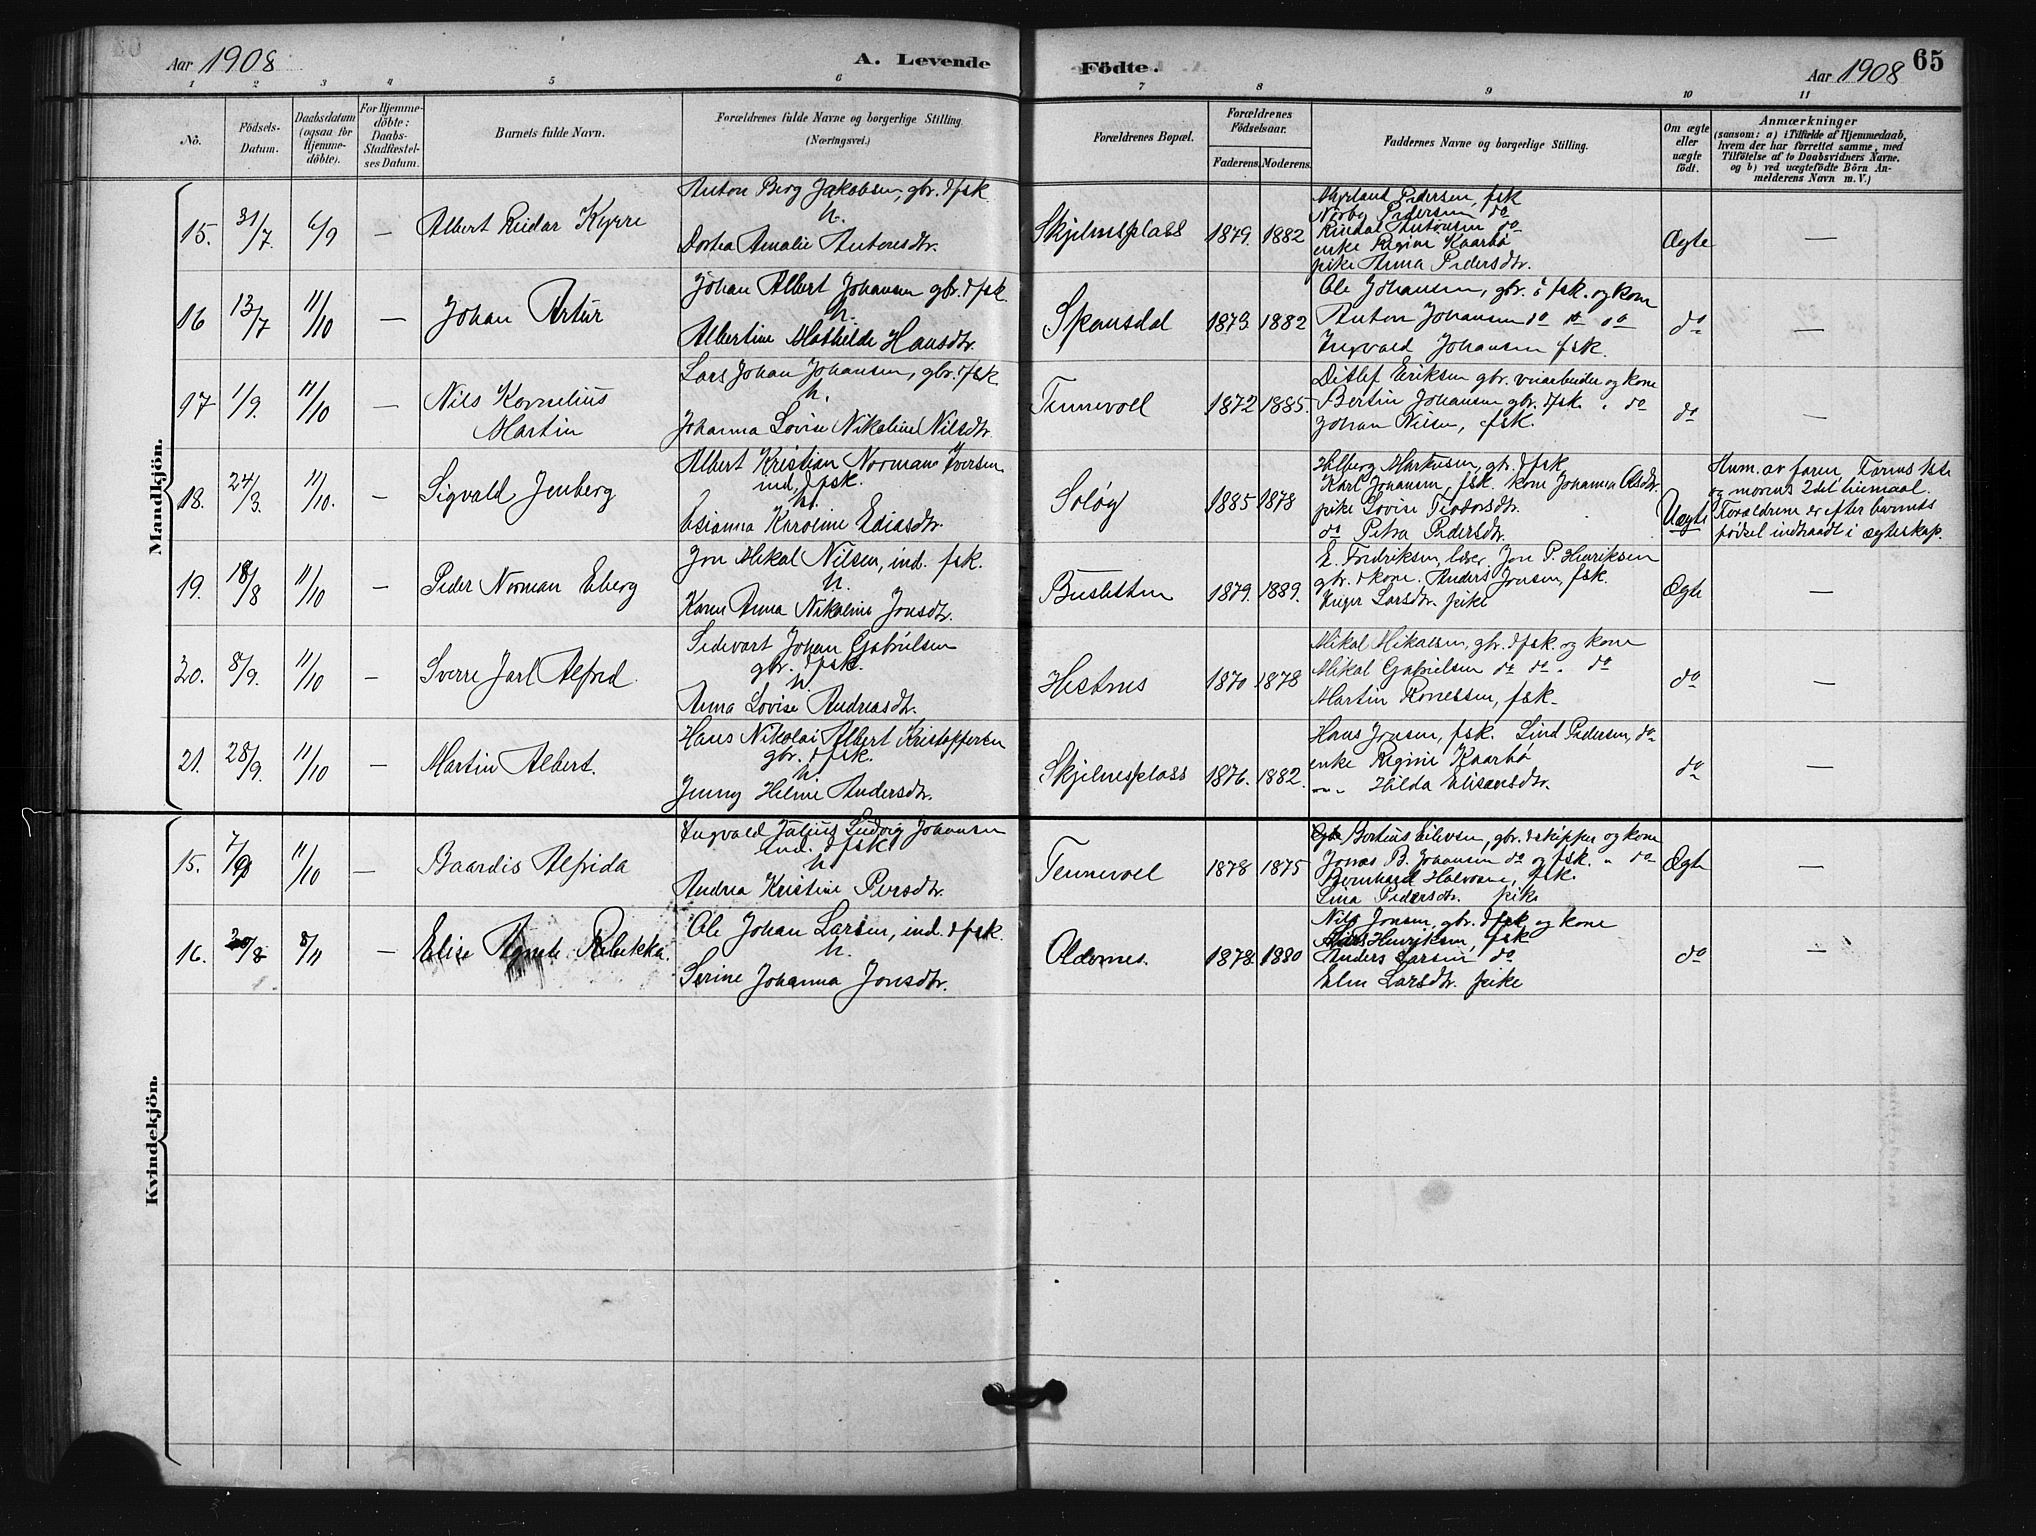 Aar 1908
A. Levende Födte.
Aar 1908
65
1 2 3 4 5 6 7 8 9 10 11
No.
Födsels-Datum.
Daabsdatum (ogsaa for Hjemme-döbte).
For Hjemme-döbte: Daabs-Stadfæstel-ses Datum.
Barnets fulde Navn.
Forældrenes fulde Navne og borgerlige Stilling. (Næringsvei.)
Forældrenes Bopæl.
Forældrenes Födselsaar.
Faderens. Moderens.
Faddernes Navne og borgerlige Stilling.
Om ægte eller uægte födt.
Anmærkninger
(saasom: a) i Tilfælde af Hjemmedaab, hvem der har forrettet samme, med Tilföielse af to Daabsvidners Navne, og b) ved uægtefödte Börn An-melderens Navn m. V.)
Mandkjön.
15. 31/7. 6/9 — Albert Reidar Kyrre
Anton Berg Jakobsen, gbr. & fsk
h.
Dortea Amalie Antonsdtr.
Skjelnesplass 1879. 1882
Myrland Pedersen, fsk
Nörby Pedersen do
Rindal Antonsen do
enke Regine Kaarbö
pike Anna Pedersdtr.
Ægte —
16 13/7 11/10 — Johan Artur
Johan Albert Johansen gbr. & fsk.
h.
Albertine Mathilde Hansdtr.
Skansdal 1873 1882
Ole Johansen, gbr. & fsk. og kone
Anton Johansen do do do
Ingvald Johansen fsk.
do —
17 1/9. 11/10 — Nils Kornelius
Martin
Lars Johan Johansen, gbr. & fsk
h.
Johanna Lovise Nikoline Nilsdtr.
Tennevoll 1872 1885.
Ditlef Eriksen gbr. veiarbeider og kone
Bertin Johansen gbr. & fsk. " do
Johan Nilsen, fsk.
do —
18. 24/3. 11/10. — Sigvald Jenberg
Albert Kristian Norman Iversen
ind. & fsk.
h.
Esianna Karoline Ediasdtr.
Solöy 1885 1878
Hilberg Markusen, gbr. & fsk
Karl Johansen, fsk. kone Johanna Olsdtr.
pike Lovise Teodorsdtr.
do Petra Pedersdtr.
Uægte
Anm. av faren, Farens 1ste
og morens 2det leiermaal.
Forældrene er efter barnets
födsel indtraadt i ægteskap.
19. 18/8 11/10 — Peder Norman Eberg
Jon Mikal Nilsen, ind. fsk.
h.
Karen Anna Nikoline Jonsdtr.
1879. 1889.
E. Fredriksen, lærer, Jon P. Henriksen
gbr. & kone. Anders Jonsen, fsk.
Inger Larsdtr. pike
Ægte —
20. 8/9. 11/10 — Sverre Jarl Alfred.
Sedevart Johan Gabrielsen
gbr. & fsk.
h.
Anna Lovise Andreasdtr.
Hestnes 1870 1878
Mikal Mikalsen, gbr. & fsk. og kone
Mikal Gabrielsen do do " do
Martin Ronessen, fsk.
do —
21. 28/9. 11/10 — Martin Albert.
Hans Nikolai Albert Kristoffersen
gbr. & fsk.
h.
Jenny Helene Andersdtr.
Skjelnesplass 1876. 1882.
Hans Jonsen, fsk. Lind Pedersen, do
enke Regine Kaarbö
Hilda Elisausdtr.
do —
Kvindekjön.
15. 7/9 11/10 — Baardis Alfrida
Ingvald Julius Ludvig Johansen
ind. & fsk.
h
Andrea Kristine Persdtr.
Tennevoll 1878 1875
Bertius Eilevsen, gbr. & skipper og kone
Jonas B. Johansen do og fsk. " do
Bernhard Halvorsen, fsk.
Lina Pedersdtr. pike
Ægte —
16. 8/11 — Elise Agnete Rebekka.
Ole Johan Larsen, ind. & fsk.
h.
Serine Johanna Jonsdtr.
Oldernes. 1878 1880
Nils Jonsen, gbr. & fsk og kone
Henriksen, fsk
Anders Larsen do
Elen Larsdtr. pike
do —